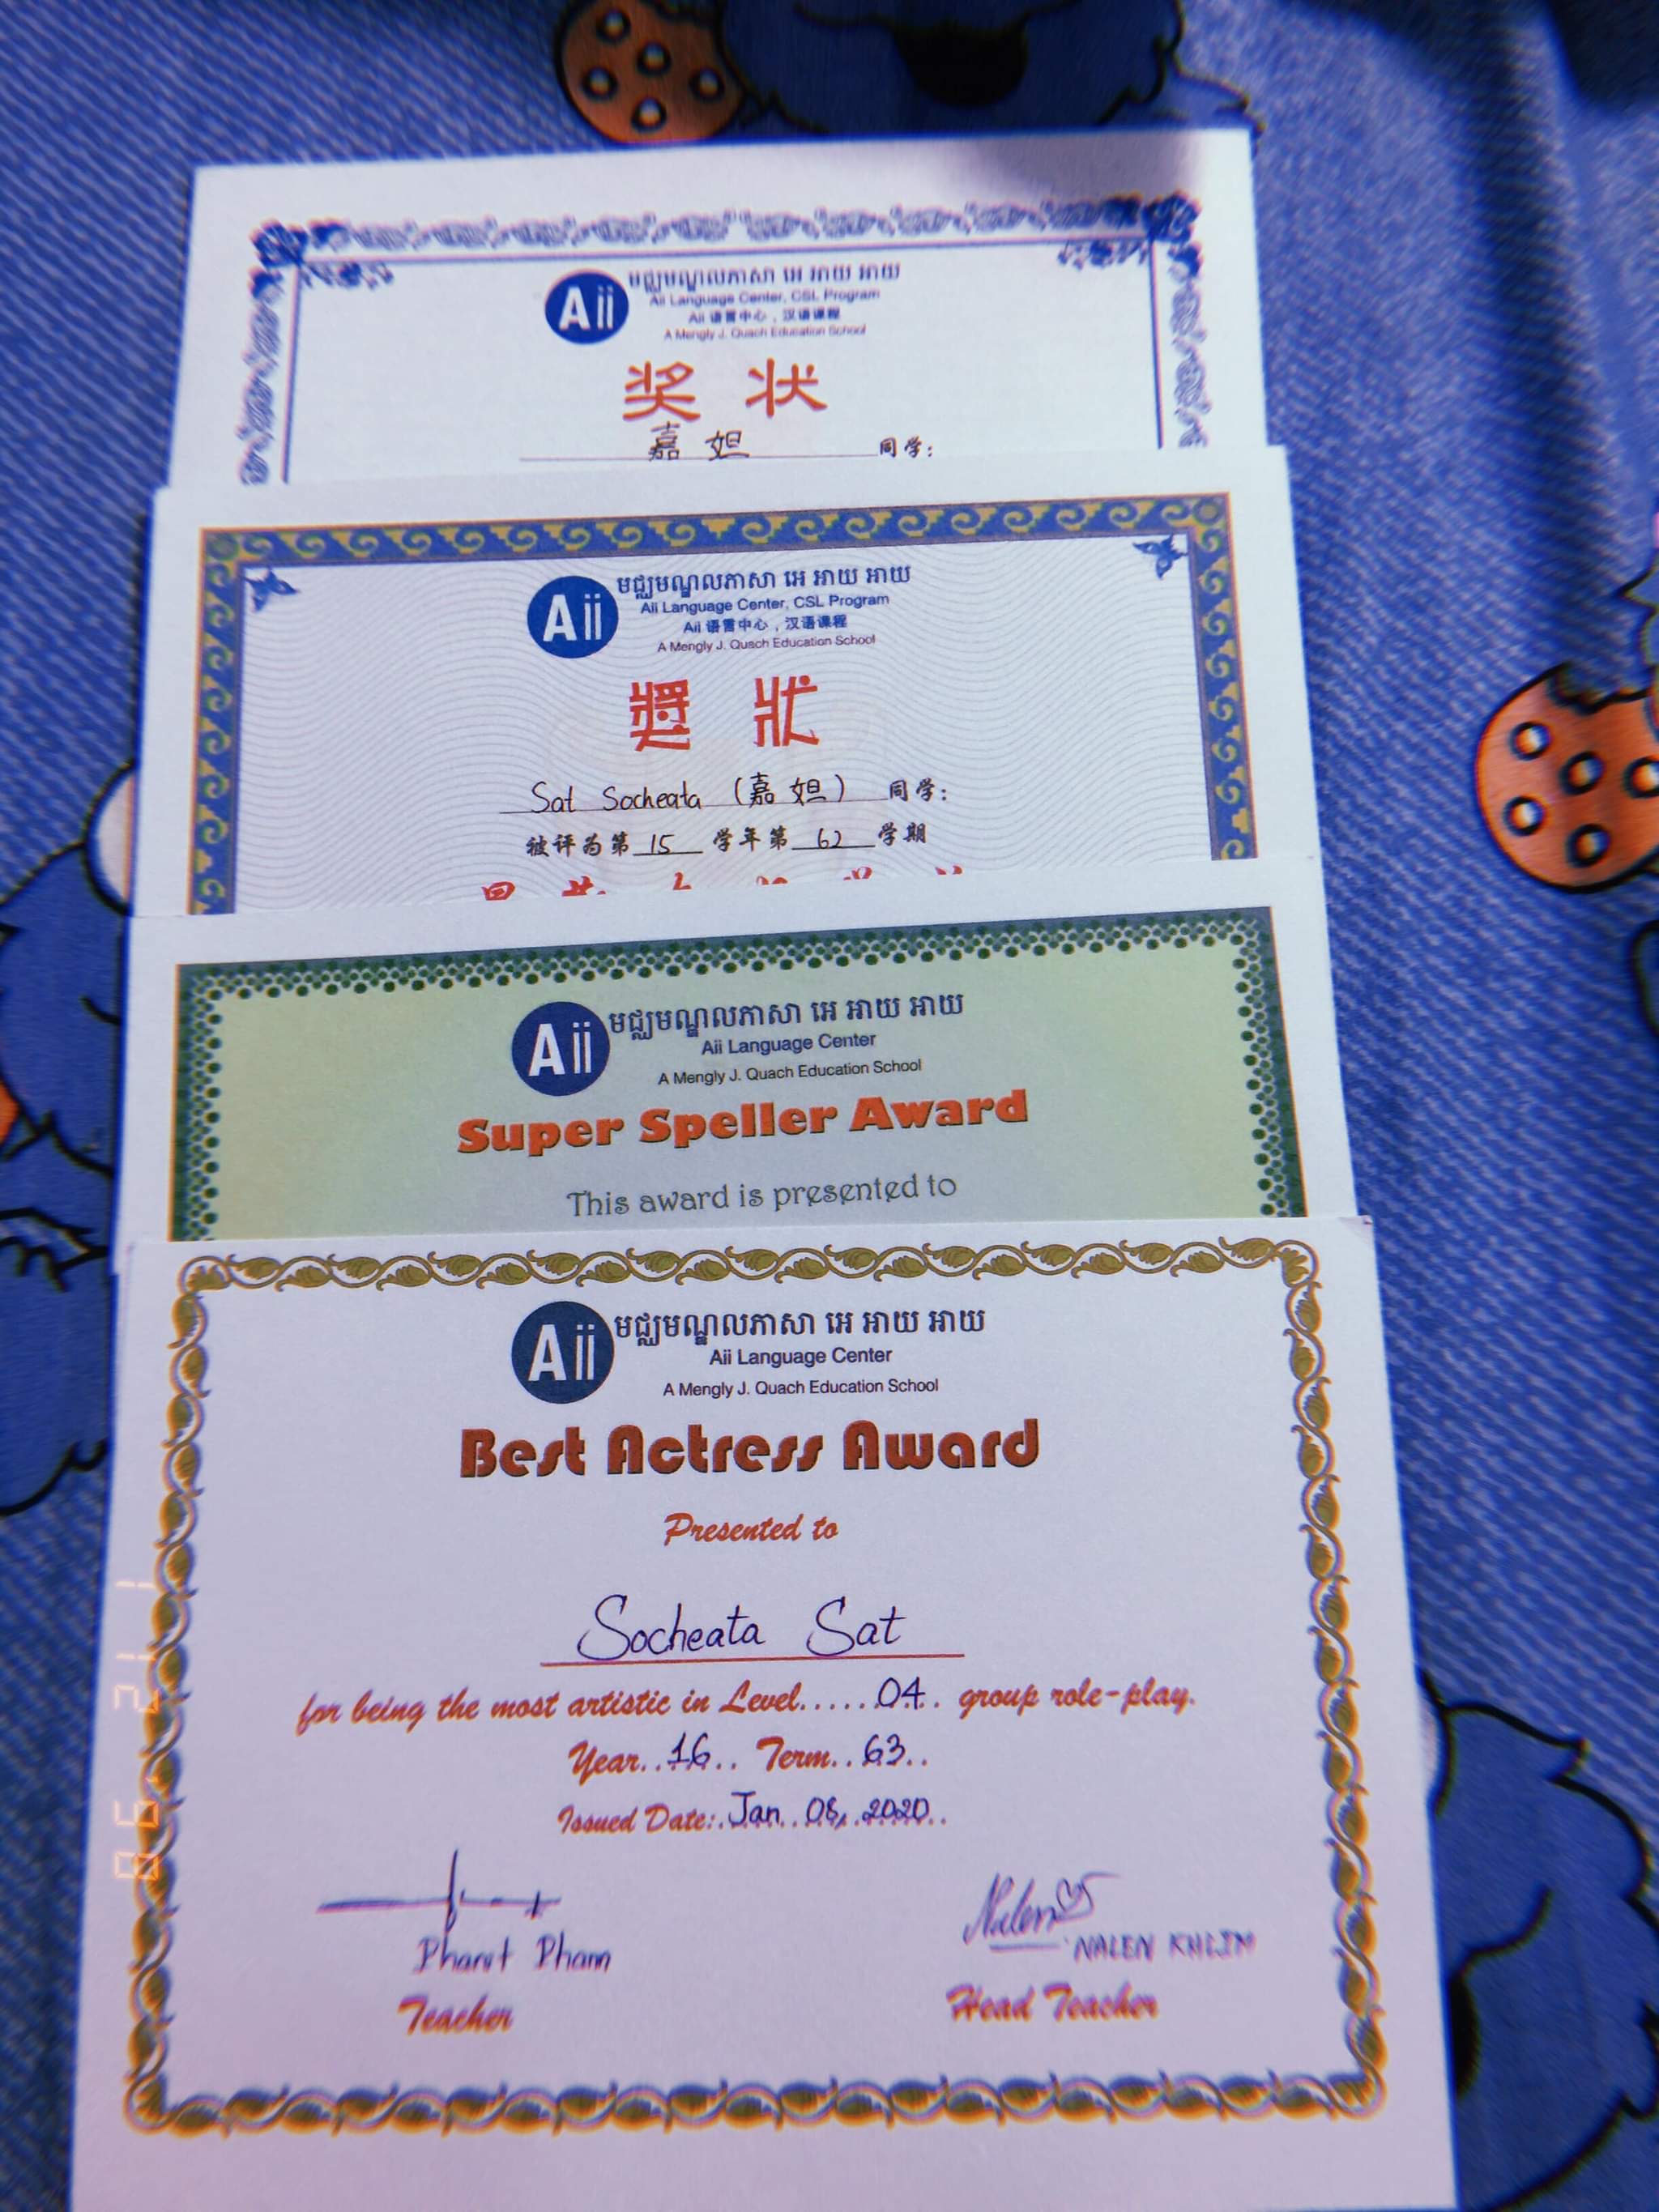 Aii
មជ្ឈមណ្ឌលភាសា អេ អាយ អាយ
Aii Language Center, CSL Program
Aii 语言中心，汉语课程
A Mengly J. Quach Education School
奖 状
嘉 妲 同学:
Aii
មជ្ឈមណ្ឌលភាសា អេ អាយ អាយ
Aii Language Center, CSL Program
Aii 语言中心，汉语课程
A Mengly J. Quach Education School
奬 狀
Sat Socheata (嘉 妲) 同学:
被评为第 15 学年第 62 学期
Aii
មជ្ឈមណ្ឌលភាសា អេ អាយ អាយ
Aii Language Center
A Mengly J. Quach Education School
Super Speller Award
This award is presented to
Aii
មជ្ឈមណ្ឌលភាសា អេ អាយ អាយ
Aii Language Center
A Mengly J. Quach Education School
Best Actress Award
Presented to
Socheata Sat
for being the most artistic in Level.....04.. group role-play.
Year..16.. Term..63..
Issued Date:.Jan..08,.2020..
Phanit Phann
Nalen
NALEN KHLIM
Teacher
Head Teacher